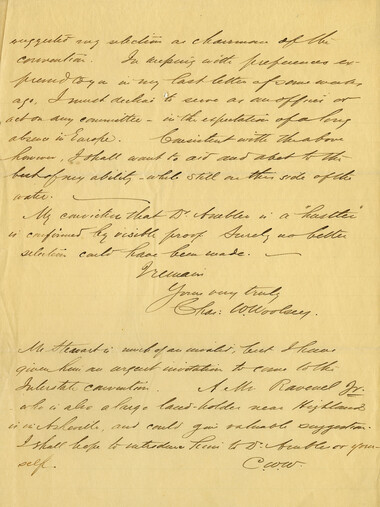 suggested my selection as chairman of the
convention. In keeping with preferences ex-
pressed to you in my last letter of some weeks
ago, I must decline to serve as an officer or
act on any committee - in the expectation of a long
absence in Europe. Consistent with the above
however, I shall want to aid and abet to the
best of my ability - while still on this side of the
water.
My conviction that Dr Ambler is a "hustler"
is confirmed by visible proof. Surely no better
selection could have been made.
I remain
Yours very truly
Chas: W. Woolsey.
Mr Stewart is much of an invalid, but I have
given him an urgent invitation to come to the
Interstate convention. A Mr Ravenel Jr.
who is also a large land-holder near Highlands
is in Asheville, and could give valuable suggestion.
I shall hope to introduce him to Dr Ambler or your-
self. C.W.W.